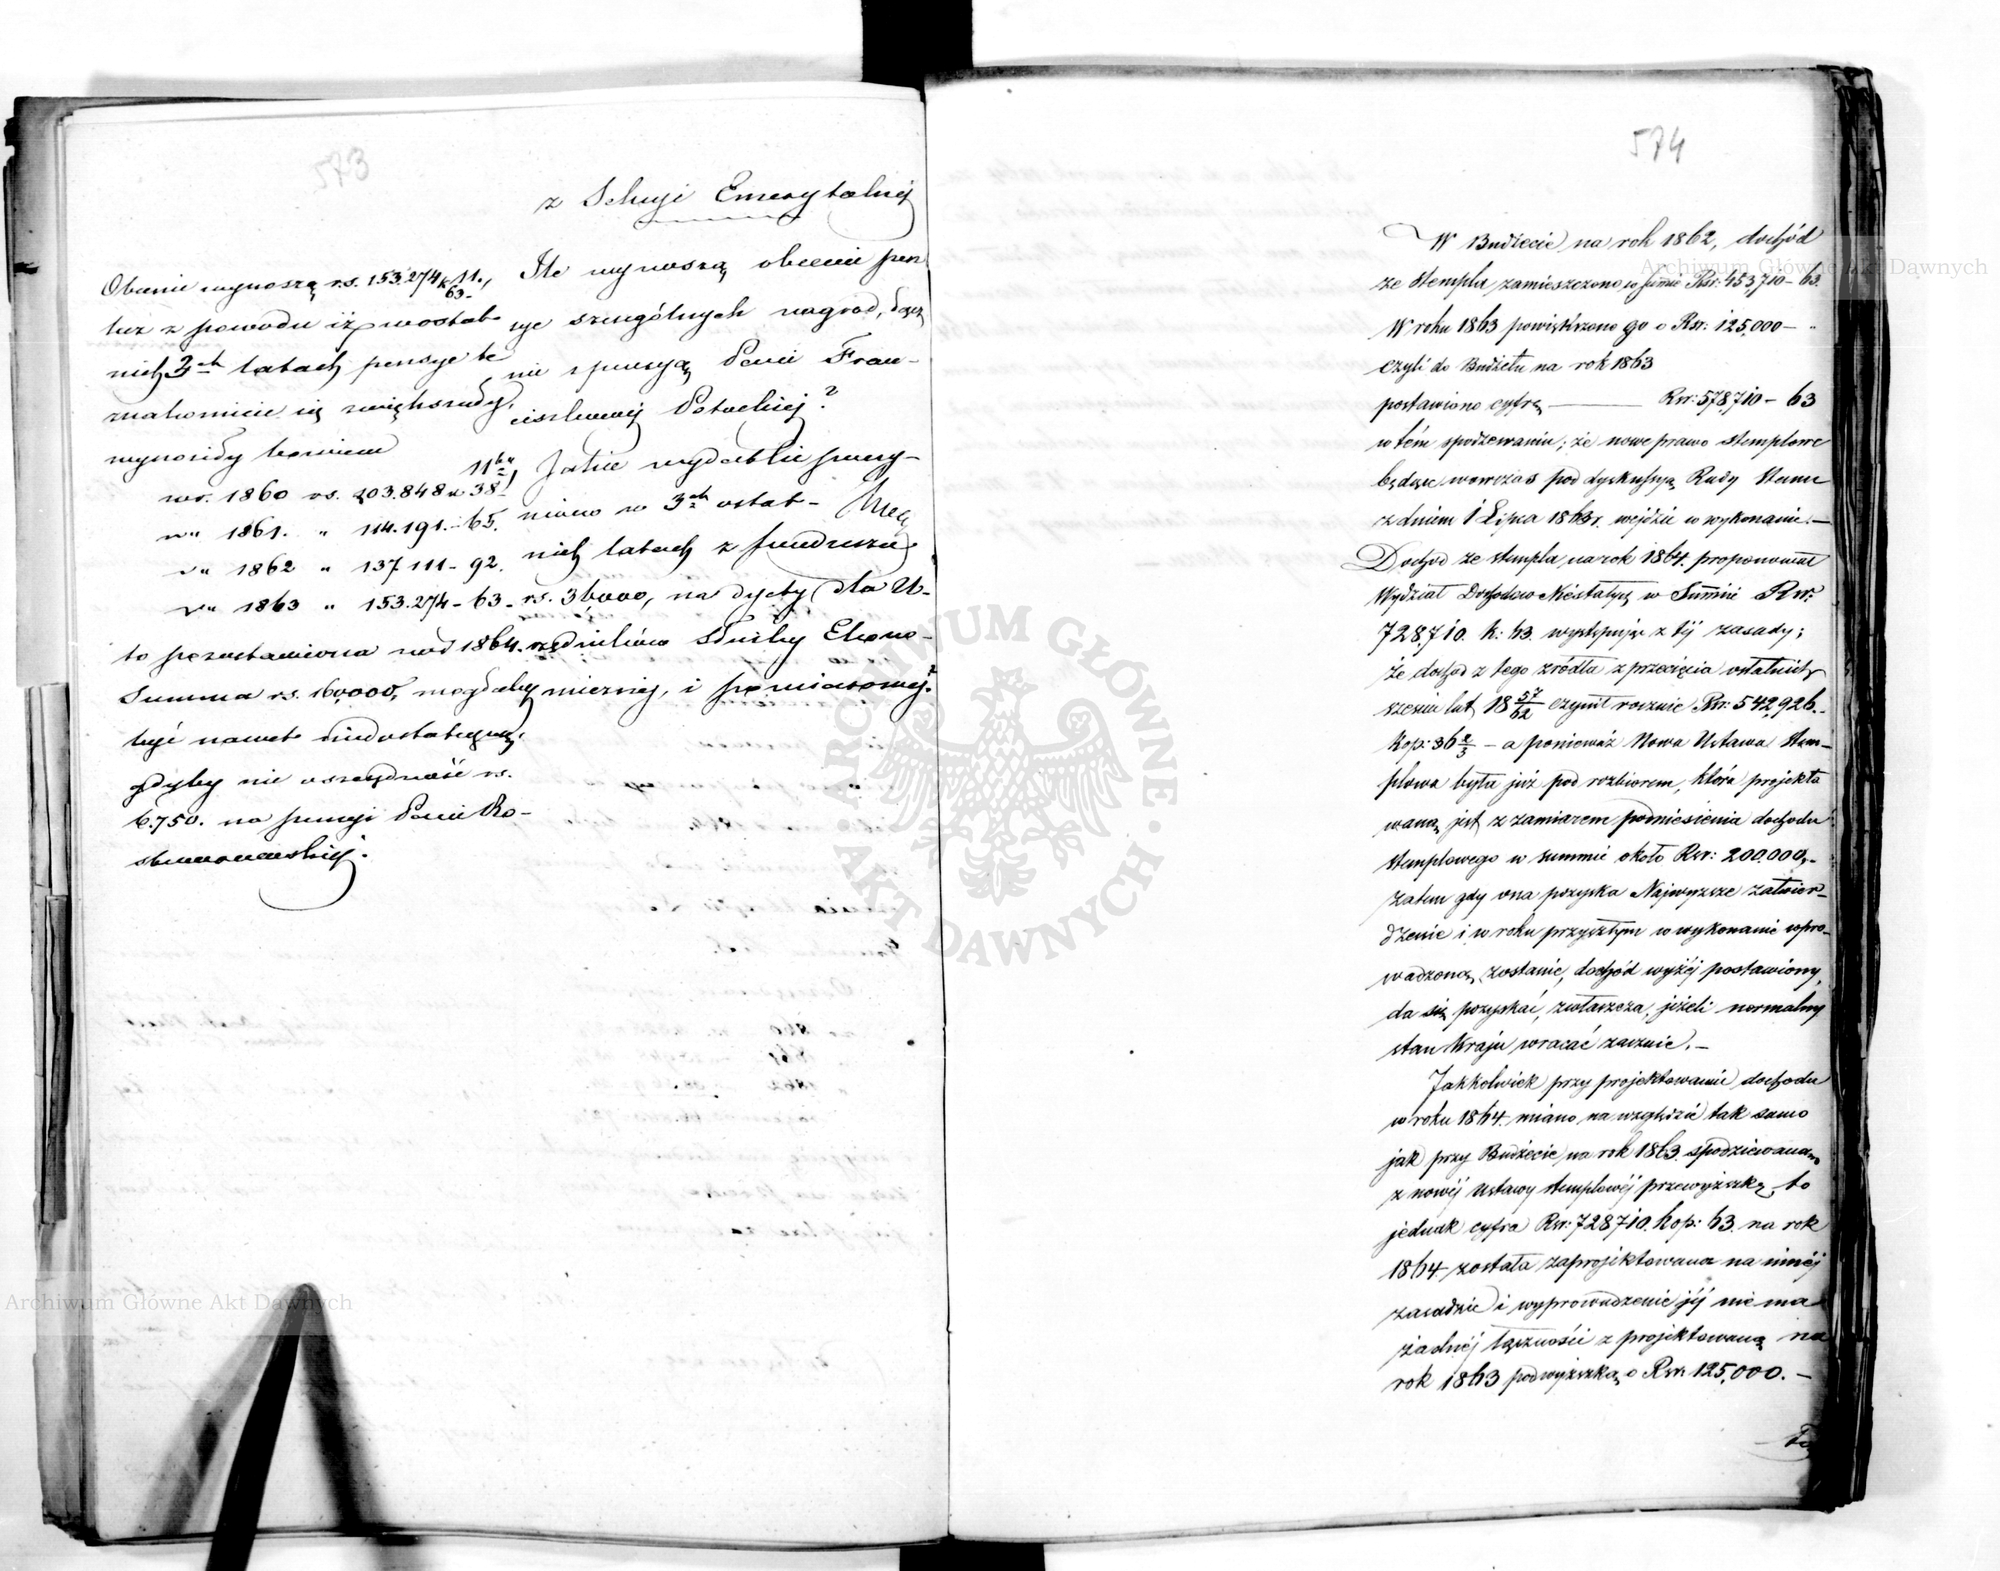 573
z Sekcyi Emerytalnej
Ile wynoszą obecnie pen
sye szczególnych nagród, łącz
nie z pensyą Pani Fran-
ciszkowej Potockiej?
Jakie wydatki pery-
niono w 3ch ostat-
nich latach z funduszu
rs. 36,000, na dyety dla U-
rzędników Służby Ekono-
micznej, i pomiarowej?
Obecnie wynoszą rs. 153.274 k. 63
lecz z powodu iż w ostat-
nich 3ch latach pensye te
znakomicie się zwiększyły,
wynosiły bowiem
w r. 1860 rs. 203.848 k 38
w " 1861. " 114.191. - 65.
w " 1862 " 137 111 - 92.
w " 1863 " 153.274 - 63 -
to pozostawiona na r. 1864.
Summa rs. 160,000, mogłaby
być nawet niedostateczną,
gdyby nie oszczędność rs.
6.750. na pensyi Pani
574
W Budżecie na rok 1862, dochód
ze stempla zamieszczono w summie Rsr: 453,710 - 63.
W roku 1863 powiększono go o Rsr: 125,000 - "
czyli do Budżetu na rok 1863
postawiono cyfrę — Rsr: 578,710 - 63
w tém spodzewaniu; że nowe prawo stemplowe
będące wowczas pod dyskussyą Rady Stanu
z dniem 1 Lipca 1863 r. wejdzie w wykonanie. —
Dochód ze stempla, na rok 1864. proponował
Wydział Dochodów Niestałych w Summie Rsr:
728,710. k: 63. występując z téj zasady;
że dochód z tego źródła z przecięcia ostatnich
sześciu lat 18 57/62 czynił rocznie Rsr: 542,926.
kop: 36 2/3 — a ponieważ Nowa Ustawa Stem-
plowa była już pod rozbiorem, która projekto
waną jest z zamiarem podniesienia dochodu
stemplowego w summie około Rsr: 200,000,-
zatem gdy ona pozyska Najwyższe zatwier-
dzenie i w roku przyszłym w wykonanie wpro-
wadzoną zostanie, dochód wyżéj postawiony,
da się pozyskać, zwłaszcza, jeżeli normalny
stan Kraju wracać zacznie. —
Jakkolwiek przy projektowaniu dochodu
w roku 1864. miano na względzie tak samo
jak przy Budżecie na rok 1863. spodziewaną
z nowéj Ustawy stemplowéj przewyżkę, to
jednak cyfra Rsr: 728,710. kop: 63. na rok
1864. została zaprojektowana na innéj
zasadzie i wyprowadzenie jéj nie ma
żadnéj łączności z projektowaną na
rok 1863 podwyżką o Rsr. 125,000. —
Archiwum Główne Akt Dawnych
Archiwum Główne Akt Dawnych
ARCHIWUM GŁÓWNE · AKT DAWNYCH ·